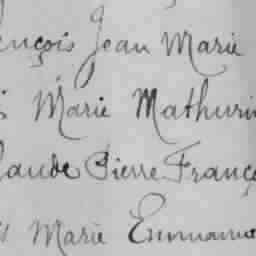 ençois Jean Marie
s Marie Mathurin
laude Pierre Franço
s Marie Emmanu